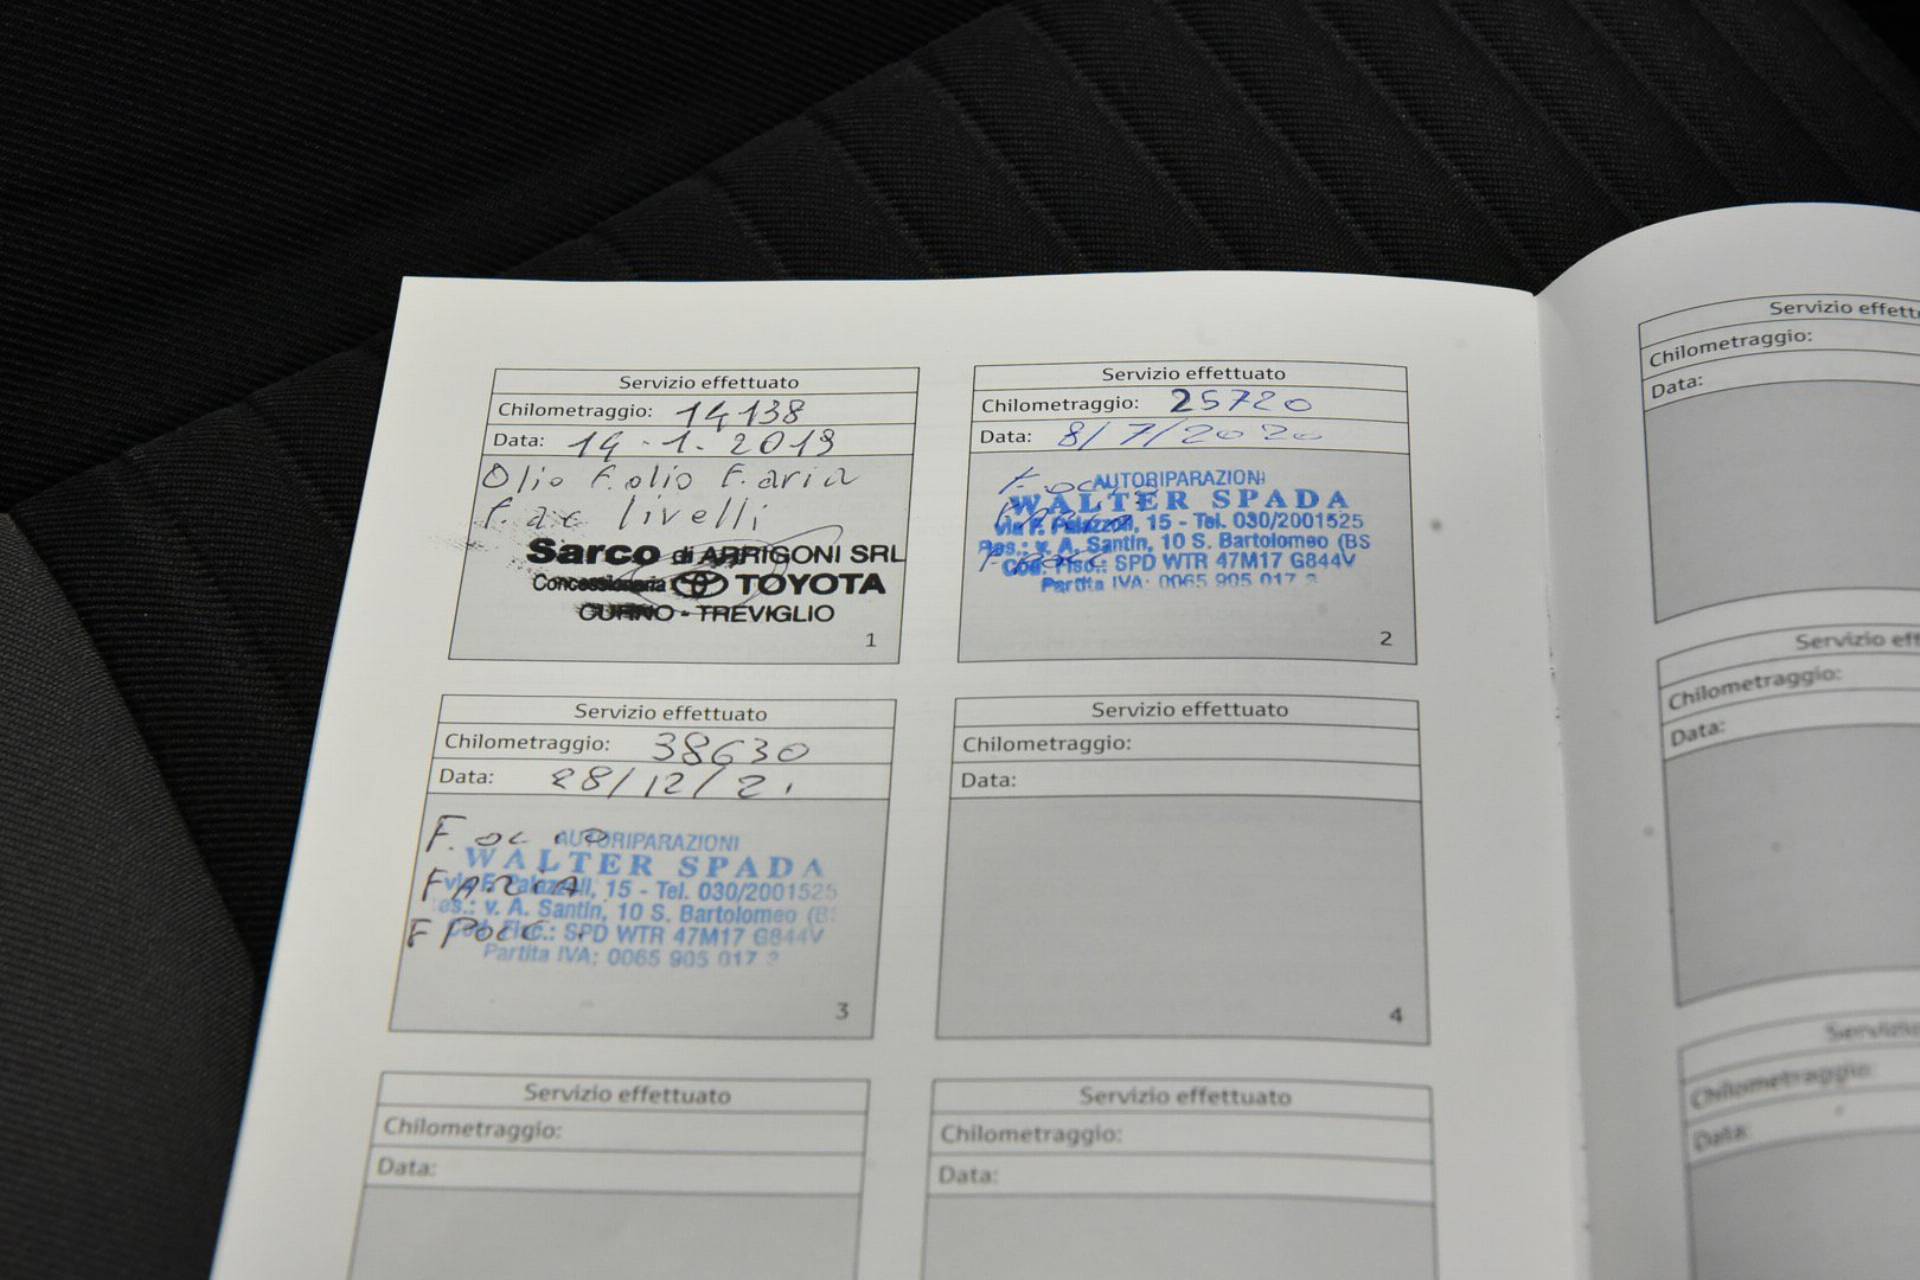 Servizio effettuato
Chilometraggio: 14138
Data: 14-1.2019
Olio F. olio F. aria
F. ac livelli
Sarco di ARRIGONI SRL
Concessionaria TOYOTA
CURNO - TREVIGLIO
1
Servizio effettuato
Chilometraggio: 25720
Data: 8/7/2020
AUTORIPARAZIONI
WALTER SPADA
via F. Palazzoli, 15 - Tel. 030/2001525
Res.: v. A. Santin, 10 S. Bartolomeo (BS
Cod. Fisc.: SPD WTR 47M17 G844V
Partita IVA: 0065 905 017
2
Servizio effettuato
Chilometraggio: 38630
Data: 28/12/21
F.
AUTORIPARAZIONI
WALTER SPADA
FARIA
via F. Palazzoli, 15 - Tel. 030/2001525
Res.: v. A. Santin, 10 S. Bartolomeo (BS
F POLL.
Cod. Fisc.: SPD WTR 47M17 G844V
Partita IVA: 0065 905 017
3
Servizio effettuato
Chilometraggio:
Data:
4
Servizio effettuato
Chilometraggio:
Data:
Servizio effettuato
Chilometraggio:
Data:
Servizio effettu
Chilometraggio:
Data:
Servizio eff
Chilometraggio:
Data:
Servizio
Chilometraggio:
Data: